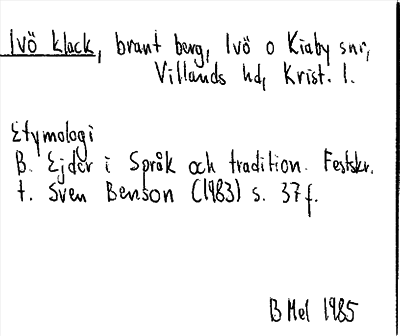 Ivö klack, brant berg, Ivö o Kiaby snr,
Villands hd, Krist. l.
Etymologi
B. Ejder i Språk och tradition. Festskr.
t. Sven Benson (1983) s. 37f.
B Mel 1985